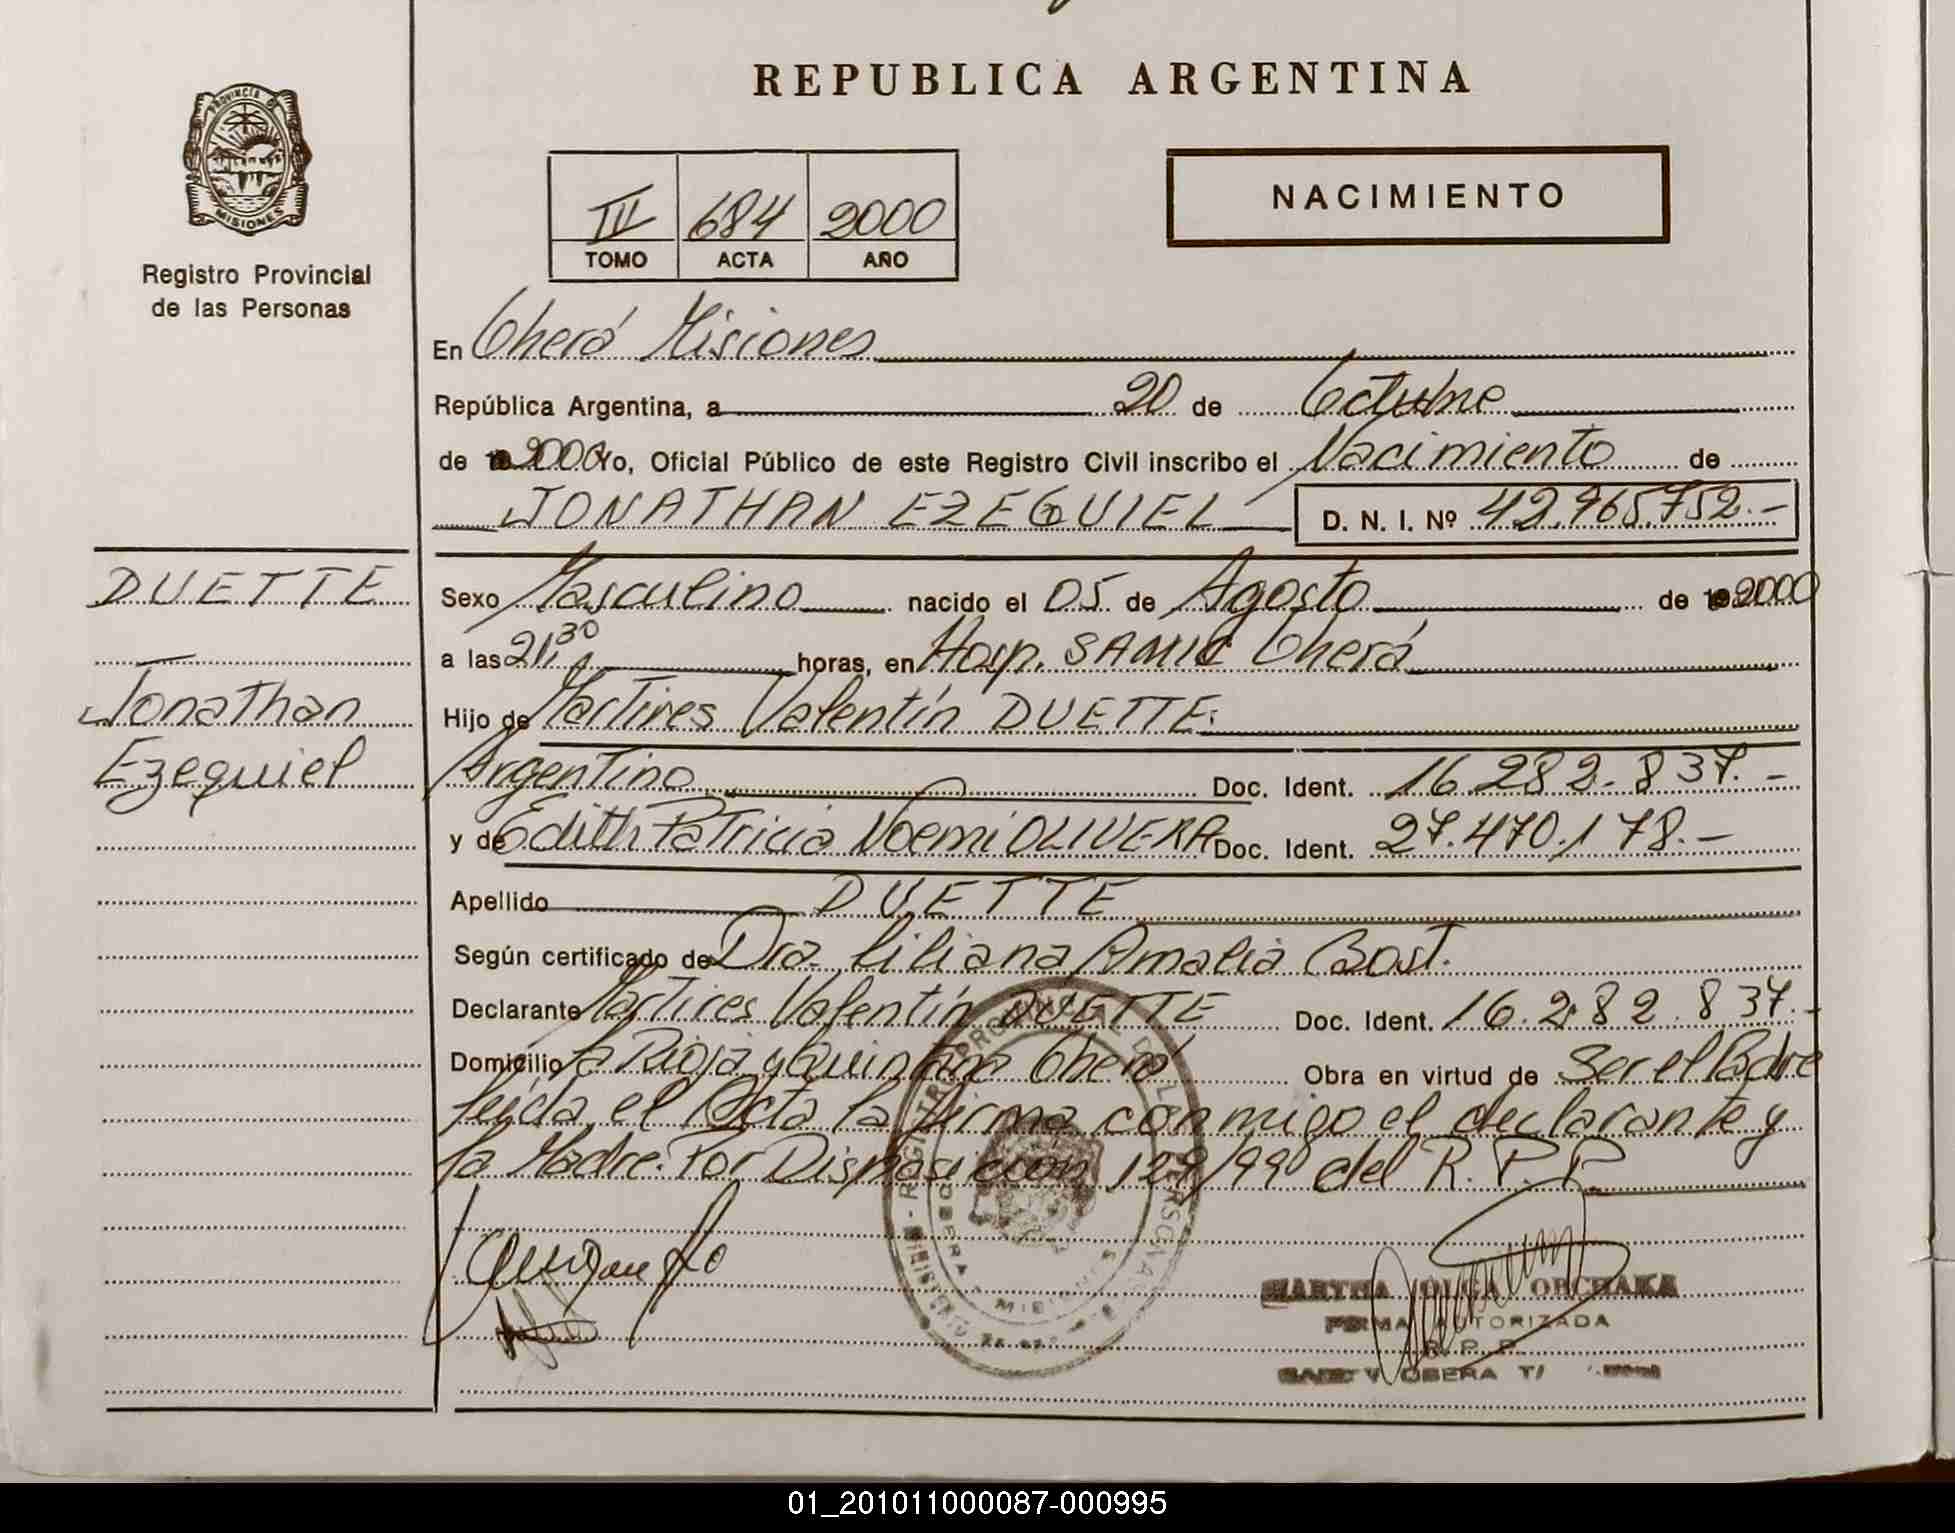 PROVINCIA DE
MISIONES
Registro Provincial
de las Personas
REPUBLICA ARGENTINA
III 684 2000
TOMO ACTA AÑO
NACIMIENTO
En Oberá Misiones
República Argentina, a 20 de Octubre
de 2000 Yo, Oficial Público de este Registro Civil inscribo el Nacimiento de
JONATHAN EZEQUIEL D. N. I. Nº 42.965.752.-
DUETTE
Jonathan
Ezequiel
Sexo Masculino nacido el 05 de Agosto de 2000
a las 21:30 horas, en Hosp. SAMIC Oberá
Hijo de Martires Valentín DUETTE
Argentino Doc. Ident. 16.282.837.-
y de Edith Patricia Noemi OLIVERA Doc. Ident. 27.470.178.-
Apellido DUETTE
Según certificado de Dra. Liliana Amalia Bost.
Declarante Martires Valentín DUETTE Doc. Ident. 16.282.837.-
Domicilio La Rioja y Quintana Oberá Obra en virtud de Ser el Padre
leida el Acta la firma conmigo el declarante y
la Madre. Por Disposicion 129/99 del R.P.P.
MARTHA OLGA ORCHAKA
FIRMA AUTORIZADA
R. P. P.
OBERA
01_201011000087-000995